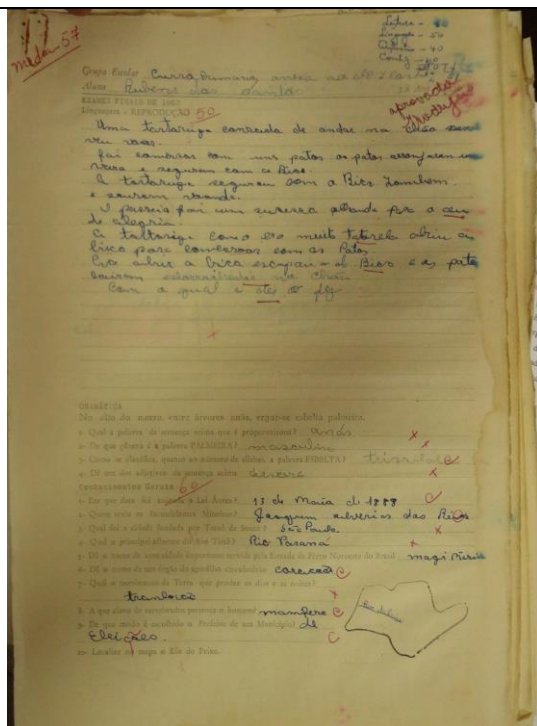 Leitura - 40
Linguagem - 50
- 40
Conh. G - 60
media 57
aprovado
Grupo Escolar Curso Primario
Aluno Rubens dos Santos
EXAMES FINAIS DE 196
Linguagem - REPRODUÇÃO 50
Uma tartaruga cansada de andar no
veu voar.
foi conversar com uns patos os patos arranjaram um
vara e seguram com o Bico.
A tartaruga segurou com a Bica Tambem.
e sairam voando.
O passeio foi um sucesso olhando para o ceu
de alegria.
A taltaruga como era muito tatarela abriu a
bico para conversar com os Patos
na chão
Com a qual e
GRAMÁTICA
No alto do morro, entre árvores anãs, ergue-se esbelta palmeira.
1- Qual a palavra da sentença acima que é proparoxítona? anãs
2- De que gênero é a palavra PALMEIRA? masculino
3- Como se classifica, quanto ao número de sílabas, a palavra ESBELTA? trissilaba
4- Dê um dos adjetivos da sentença acima arvore
Conhecimentos Gerais 60
1- Em que data foi assinada a Lei Áurea? 13 de Maio d 1888
2- Quem traiu os Inconfidentes Mineiros? Joaquim silverios dos Reis
3- Qual foi a cidade fundada por Tomé de Souza? São Paulo
4- Qual o principal afluente do Rio Tietê? Rio Paraná
5- Dê o nome de uma cidade importante servida pela Estrada de Ferro Noroeste do Brasil
6- Dê o nome de um órgão do aparêlho circulatório coração
7- Qual o movimento da Terra que produz os dias e as noites?
8- A que classe de vertebrados pertence o homem? mamifero
9- De que modo é escolhido o Prefeito de um Município? de
Eleições.
10- Localize no mapa o Rio do Peixe.
Rio do Peixe